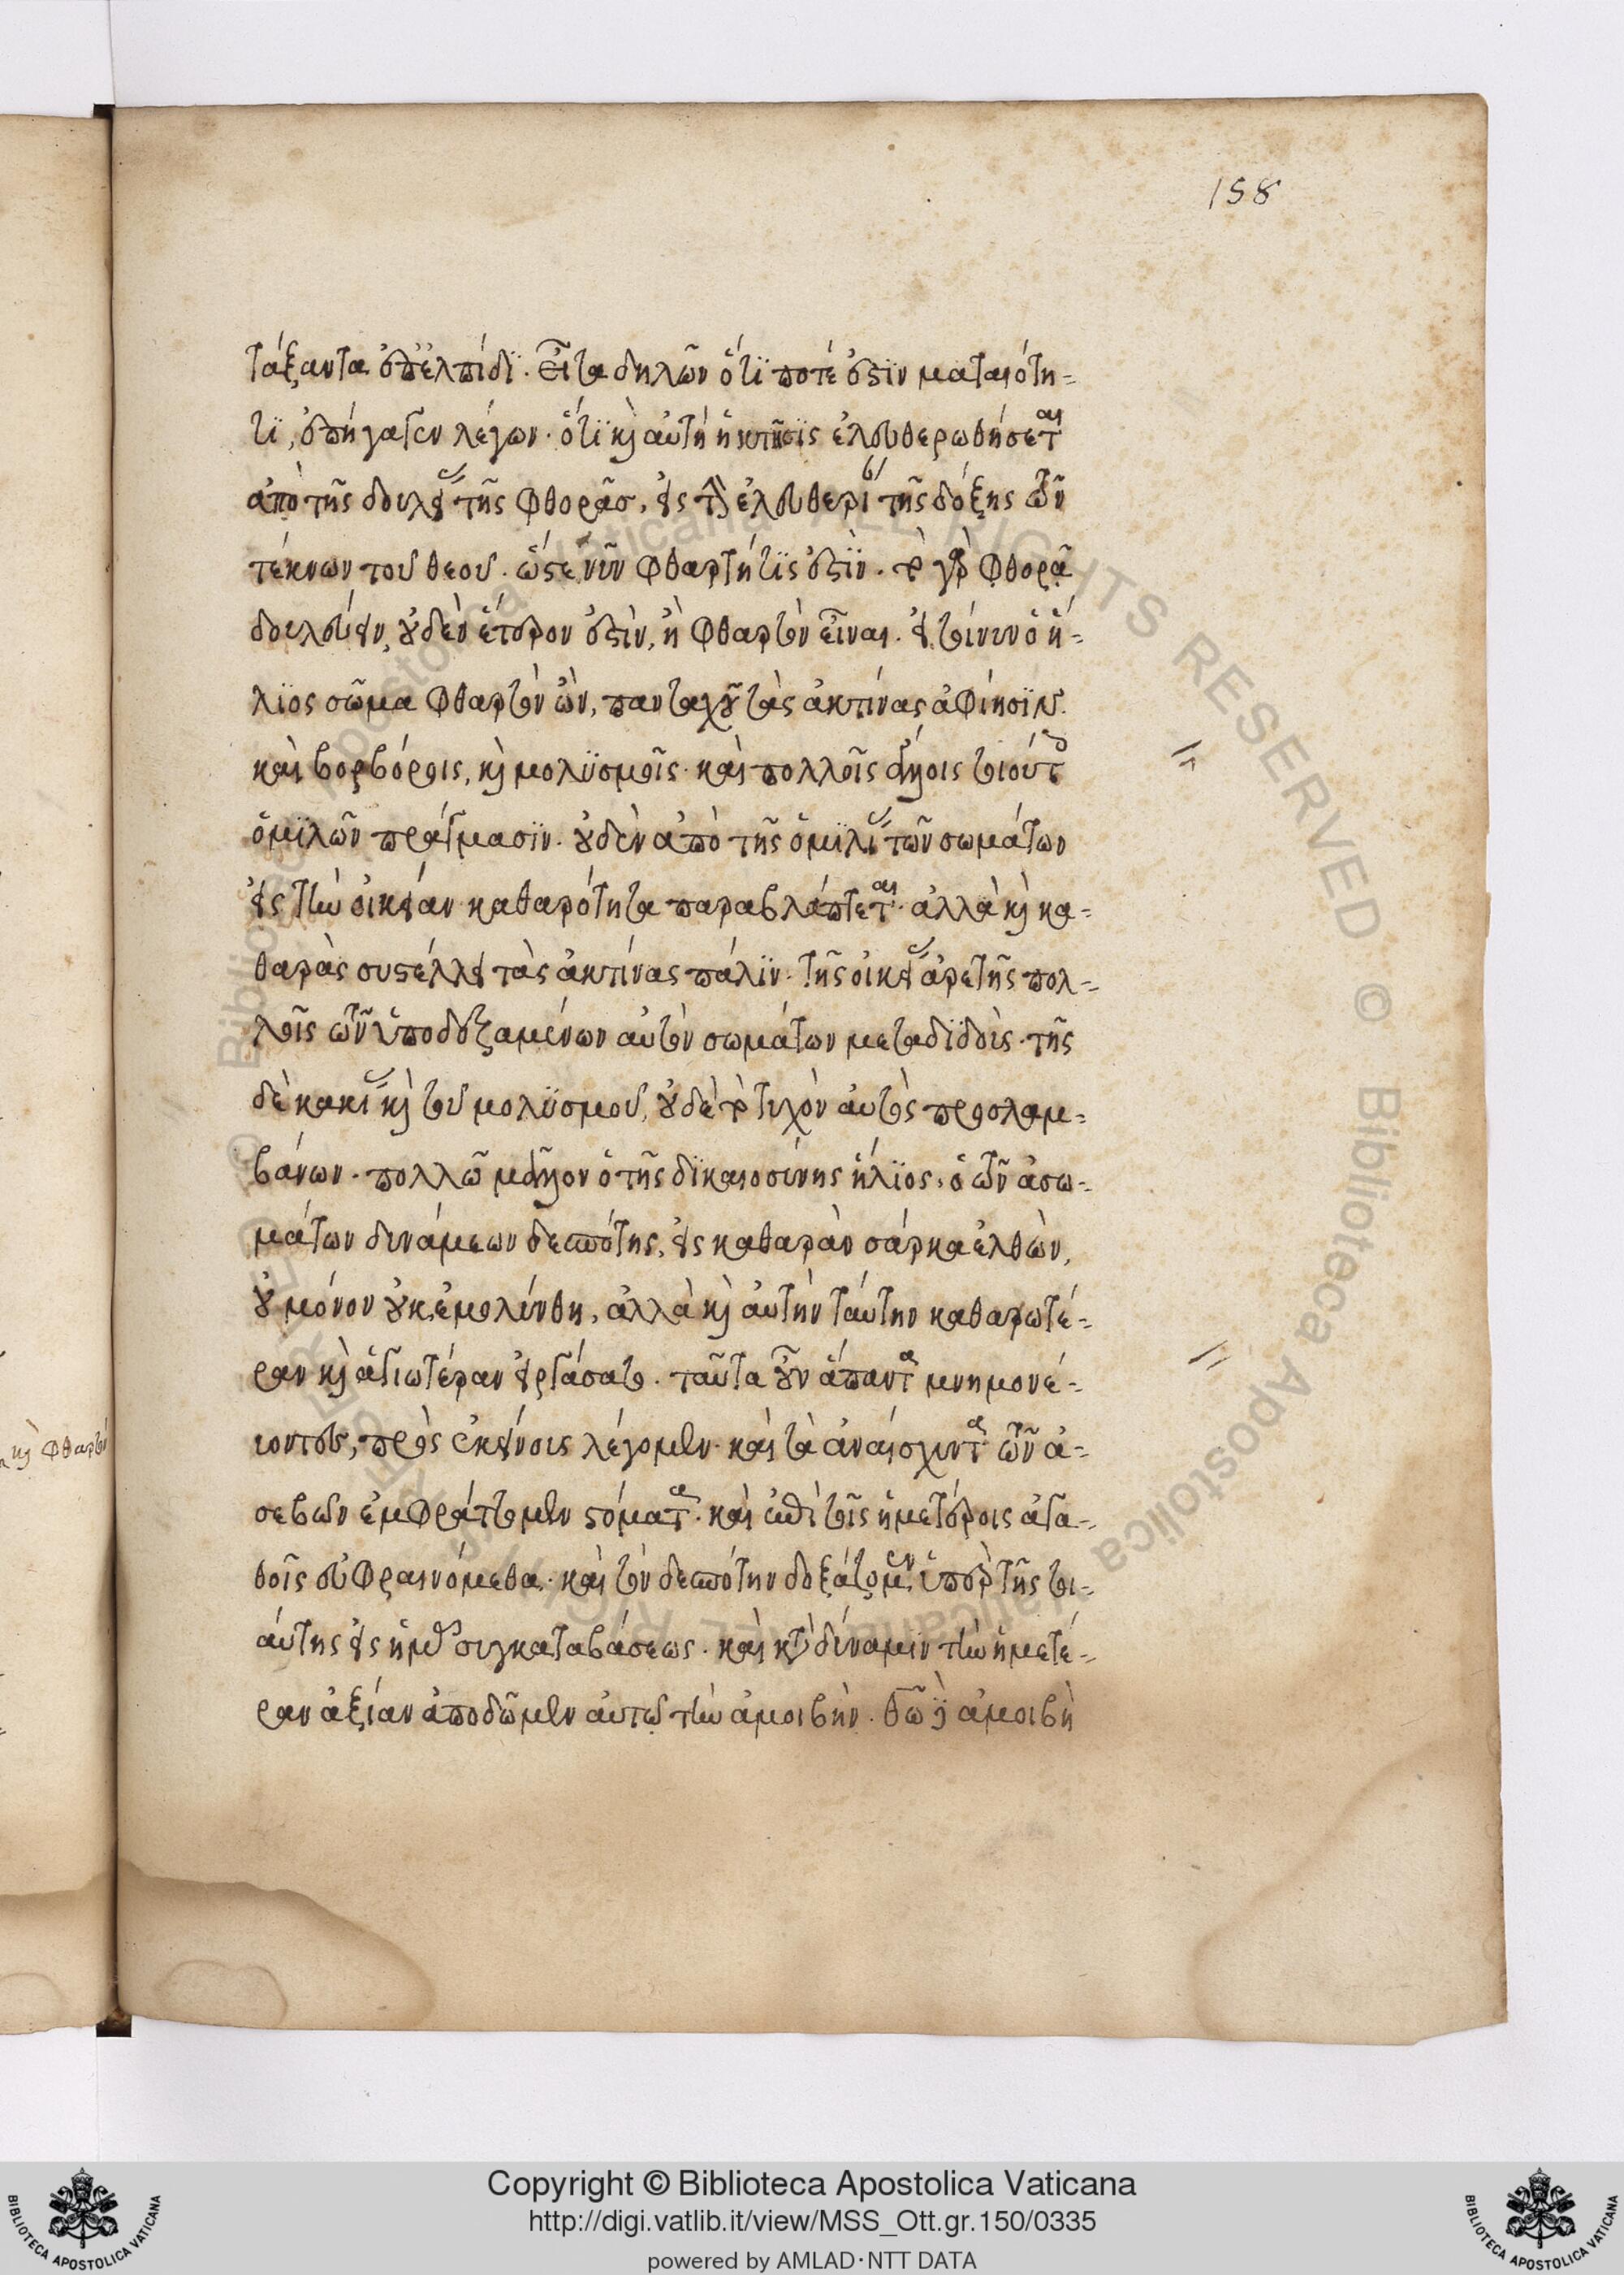 158
τάξαντα ἐπ' ἐλπίδι. εἶτα δηλῶν ὅτι ποτέ ἐστιν ματαιότη-
τι, ἐπήγαγεν λέγων. ὅτι καὶ αὐτὴ ἡ κτῆσις ἐλευθερωθήσεται
ἀπὸ τῆς δουλείας τῆς φθορᾶς, εἰς τὴν ἐλευθερίαν τῆς δόξης τῶν
τέκνων τοῦ θεοῦ. ὥστε νῦν φθαρτή τις ἐστίν. τὸ γὰρ φθορᾷ
δουλεύειν, οὐδὲν ἕτερον ἐστὶν, ἢ φθαρτὸν εἶναι. εἰ τοίνυν ὁ ἥ-
λιος σῶμα φθαρτὸν ὢν, πανταχοῦ τὰς ἀκτίνας ἀφίησιν.
καὶ βορβόροις, καὶ μολυσμοῖς. καὶ πολλοῖς ἄλλοις τοιούτοις
ὁμιλῶν πράγμασιν. οὐδὲν ἀπὸ τῆς ὁμιλίας τῶν σωμάτων
εἰς τὴν οἰκείαν καθαρότητα παραβλάπτεται. ἀλλὰ καὶ κα-
θαρὰς συστέλλει τὰς ἀκτίνας πάλιν. τῆς οἰκείας ἀρετῆς πολ-
λοῖς τῶν ὑποδεξαμένων αὐτὸν σωμάτων μεταδιδοὺς. τῆς
δὲ κακίας καὶ τοῦ μολυσμοῦ, οὐδὲ τὸ τυχὸν αὐτὸς προσλαμ-
βάνων. πολλῷ μᾶλλον ὁ τῆς δικαιοσύνης ἥλιος, ὁ τῶν ἀσω-
μάτων δυνάμεων δεσπότης, εἰς καθαρὰν σάρκα ἐλθὼν,
οὐ μόνον οὐκ ἐμολύνθη, ἀλλὰ καὶ αὐτὴν ταύτην καθαρωτέ-
ραν καὶ ἁγιωτέραν εἰργάσατο. ταῦτα οὖν ἅπαντα μνημονεύ-
οντες, πρὸς ἐκείνοις λέγομεν. καὶ τὰ ἀναίσχυντα τῶν ἀ-
σεβῶν ἐμφράττομεν στόματα. καὶ ἐπὶ τοῖς ἡμετέροις ἀγα-
θοῖς εὐφραινόμεθα. καὶ τὸν δεσπότην δοξάζομεν, ὑπὲρ τῆς τοι-
αύτης εἰς ἡμᾶς συγκαταβάσεως. καὶ κατὰ δύναμιν τὴν ἡμετέ-
ραν ἀξίαν ἀποδῶμεν αὐτῷ τὴν ἀμοιβὴν. θεῷ δὲ ἀμοιβὴ
καὶ φθαρτὸν
Copyright © Biblioteca Apostolica Vaticana
http://digi.vatlib.it/view/MSS_Ott.gr.150/0335
powered by AMLAD·NTT DATA
BIBLIOTECA APOSTOLICA VATICANA
BIBLIOTECA APOSTOLICA VATICANA